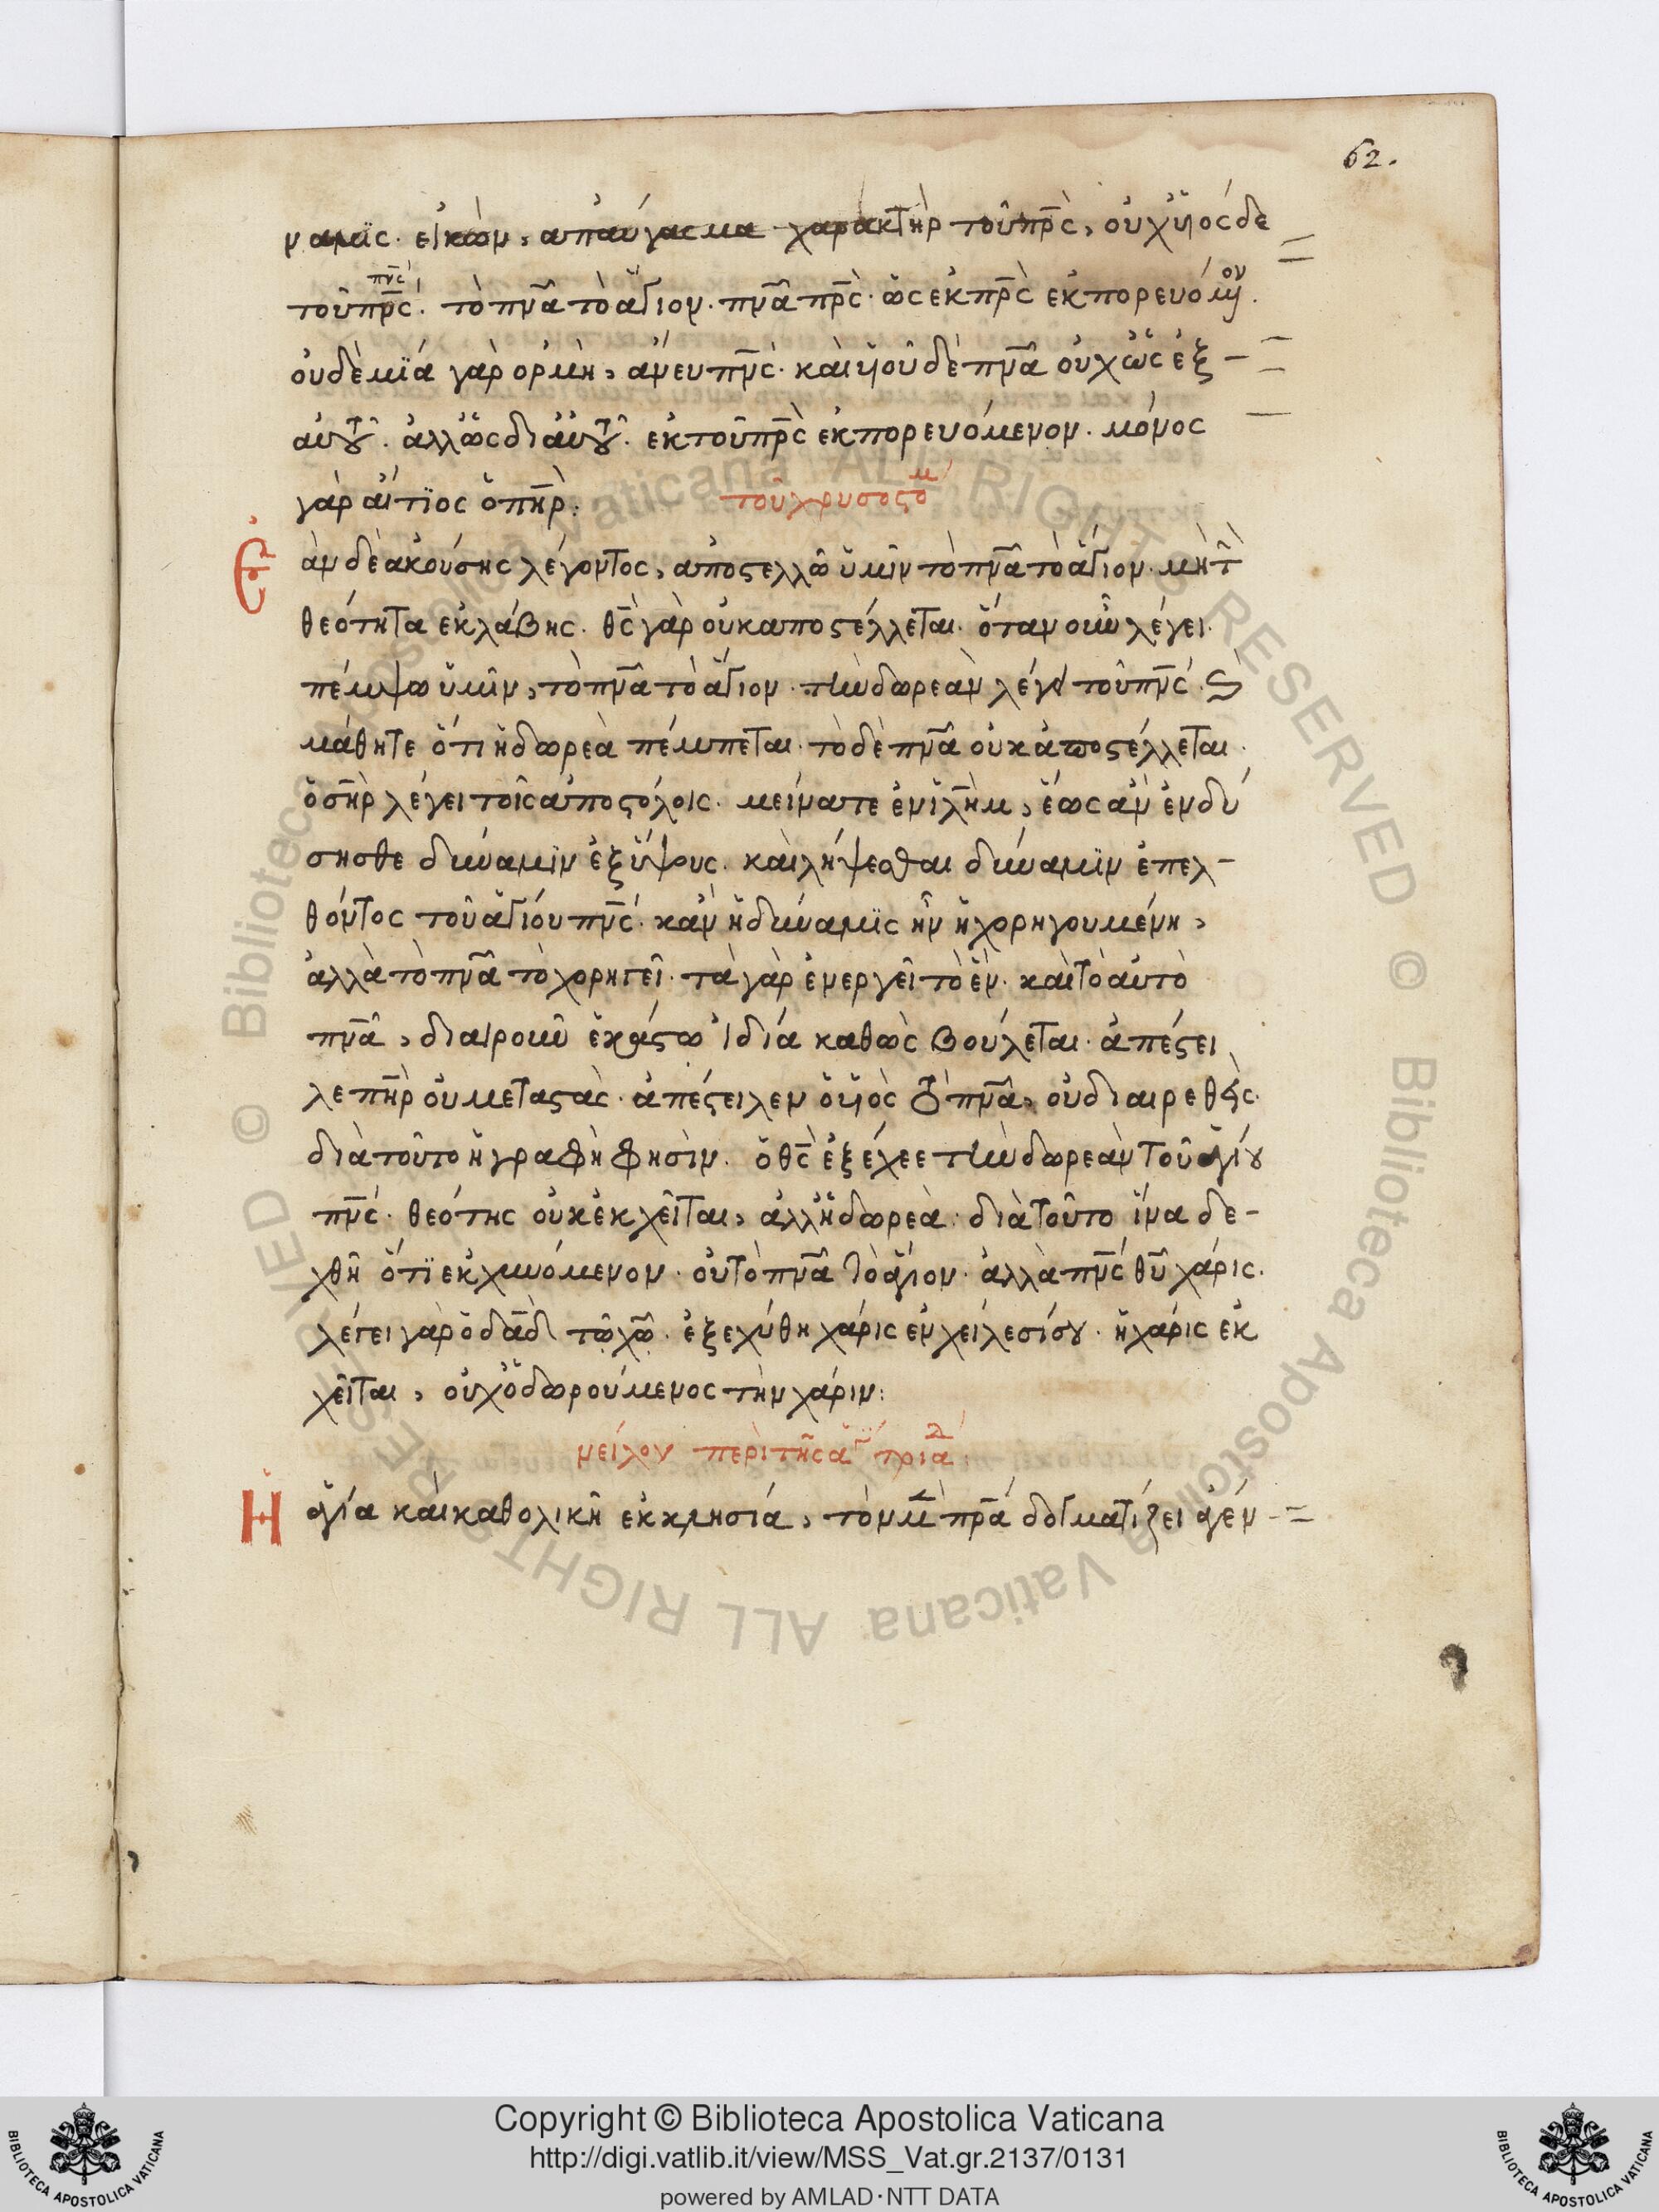 62.
ναμϊς. εἰκὼν, ἀπαύγασμα χαρακτὴρ τοῦ πρ̅ς, οὐχ ὑιὸς δε
πν̅ς
τοῦ πρ̅ς. τὸ πν̅α τὸ ἅγιον. πν̅α πρ̅ς. ὡς ἐκ πρ̅ς ἐκπορευόμον.
οὐδὲ μϊά γὰρ ὁρμὴ, ἄνευ πν̅ς. καὶ ὑιοῦ δὲ πν̅α οὐχ ὡς ἐξ -
αυτοῦ. ἀλλ ὡς δι αὐτοῦ. ἐκ τοῦ πρ̅ς ἐκπορευόμενον. μόνος
γὰρ αἴτϊος ὁ πη̅ρ:
τοῦ χρυσοστομ
Ἐὰν δὲ ἀκούσης λέγοντος, ἀποστελλῶ ὑμῖν τὸ πν̅α τὸ ἅγιον. μὴ τ
θεότητα ἐκλάβης. θς̅ γὰρ οὐκ αποστέλλεται. ὅταν οὖν λέγει.
πέμψω ὑμῖν, τὸ πν̅α τὸ ἅγιον. τὴν δωρεὰν λέγει τοῦ πν̅ς. ϗ
μάθητε ὅτι ἡ δωρεὰ πέμπεται. τὸ δὲ πν̅α οὐκ ἀποστέλλεται.
ὁ ση̅ρ λέγει τοῖς ἀποστόλοις. μείνατε ἐν ϊλη̅μ, ἕως ἀν ἐνδύ
σησθε δύναμϊν ἐξ ὕψους. καὶ λήψεσθαι δύναμϊν ἐπελ -
θόντος τοῦ ἁγίου πν̅ς. κἀν ἡ δύναμϊς ἦν ἡ χορηγουμένη,
ἀλλὰ τὸ πν̅α τὸ χορηγεῖ. τὰ γὰρ ἐνεργεῖ τὸ ἕν. καὶ τὸ αὐτὸ
πν̅α, διαιροῦν ἑκάστω ἰδία καθὼς βούλεται. ἀπέστει
λε πη̅ρ οὐ μεταστὰς. ἀπέστειλεν ὁ ὑιὸς τὸ πν̅α, οὐ διαιρεθείς.
διὰ τοῦτο ἡ γραφὴ φησὶν. ὁ θς̅ ἐξέχεε τὴν δωρεὰν τοῦ ἁγίου
πν̅ς. θεότης οὐκ ἐκχεῖται, ἀλλ ἡ δωρεὰ. διὰ τοῦτο ἵνα δε -
χθῆ ὅτϊ ἐκχυνόμενον. οὐ τὸ πν̅α τὸ ἅγιον. ἀλλὰ πν̅ς θυ̅ χάρις.
λέγει γὰρ ὁ δα̅δ τῶ χω̅. ἐξεχύθη χάρις ἐν χείλεσί σου. ἡ χάρις ἐκ
χεῖται, οὐχ ὁ δωρούμενος τὴν χάριν:
νείλου περὶ τῆς ἁγ τριάδ:
Ἡ ἁγία καὶ καθολικὴ ἐκκλησιά, τὸν μ πρ̅α δογματίζει ἀγέν -
Copyright © Biblioteca Apostolica Vaticana
http://digi.vatlib.it/view/MSS_Vat.gr.2137/0131
powered by AMLAD·NTT DATA
BIBLIOTECA APOSTOLICA VATICANA
BIBLIOTECA APOSTOLICA VATICANA
© Biblioteca Apostolica Vaticana ALL RIGHTS RESERVED
© Biblioteca Apostolica Vaticana ALL RIGHTS RESERVED